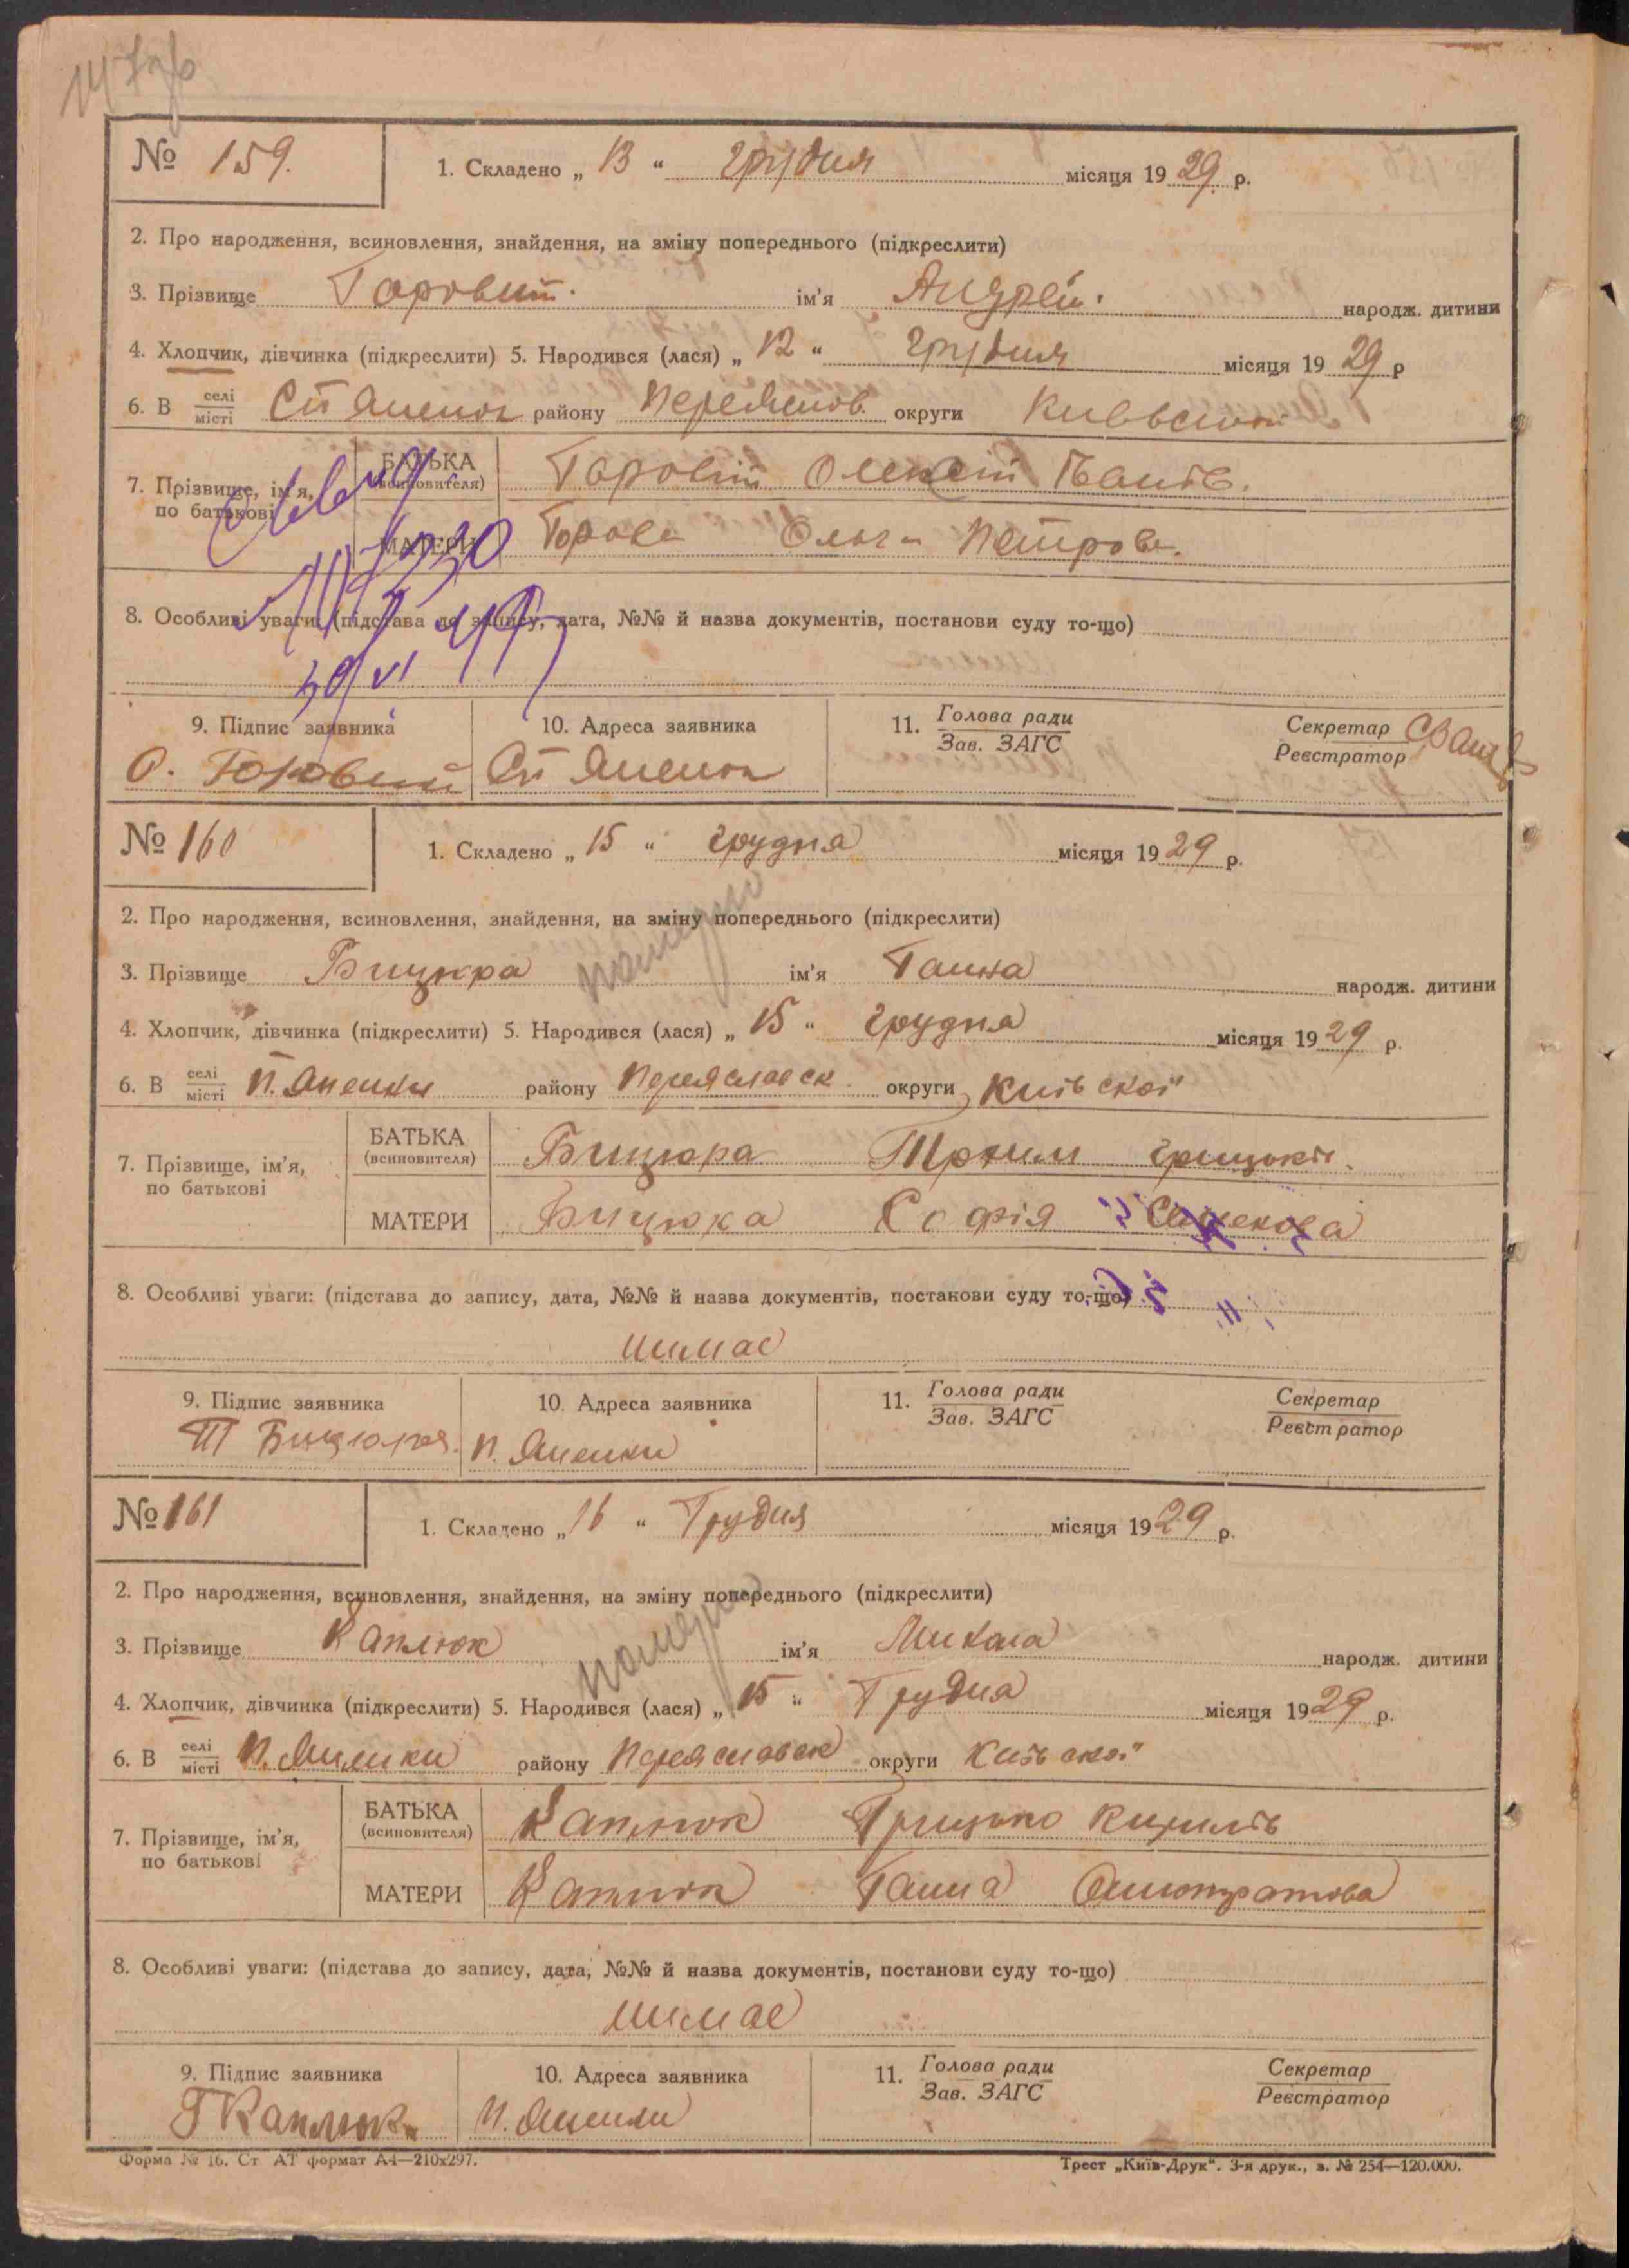 № 159. 1. Складено „ 13 “ грудня місяця 19 29 р.
2. Про народження, всиновлення, знайдення, на зміну попереднього (підкреслити)
3. Прізвище Горовий ім'я Андрей народж. дитини
4. Хлопчик, дівчинка (підкреслити) 5. Народився (лася) „ 12 “ грудня місяця 19 29 р
6. В селі місті Ст Яненок району Переяслов. округи Київської
7. Прізвище, ім'я, по батькові
БАТЬКА (всиновителя) Горовий Олексій Іванів.
МАТЕРИ Горова Ольга Петров.
8. Особливі уваги: (підстава до запису, дата, №№ й назва документів, постанови суду то-що)
9. Підпис заявника 10. Адреса заявника 11. Голова ради Зав. ЗАГС Секретар Реєстратор
О. Горовий Ст Яненок
№ 160 1. Складено „ 15 “ грудня місяця 19 29 р.
2. Про народження, всиновлення, знайдення, на зміну попереднього (підкреслити)
3. Прізвище Бицюра ім'я Ганна народж. дитини
4. Хлопчик, дівчинка (підкреслити) 5. Народився (лася) „ 15 “ грудня місяця 19 29 р.
6. В селі місті П. Яненки району Переяславск округи Київської
7. Прізвище, ім'я, по батькові
БАТЬКА (всиновителя) Бицюра Трохим Грицьків.
МАТЕРИ Бицюка Софія
8. Особливі уваги: (підстава до запису, дата, №№ й назва документів, постанови суду то-що)
нимає
9. Підпис заявника 10. Адреса заявника 11. Голова ради Зав. ЗАГС Секретар Реєстратор
Т Бицюра. П. Яненки
№ 161 1. Складено „ 16 “ Грудня місяця 19 29 р.
2. Про народження, всиновлення, знайдення, на зміну попереднього (підкреслити)
3. Прізвище Каплюк ім'я Микола народж. дитини
4. Хлопчик, дівчинка (підкреслити) 5. Народився (лася) „ 15 “ Грудня місяця 19 29 р.
6. В селі місті П. Яненки району Переяславск округи Київської
7. Прізвище, ім'я, по батькові
БАТЬКА (всиновителя) Каплюк Грицько Кирилів
МАТЕРИ Каплюк Ганна
8. Особливі уваги: (підстава до запису, дата, №№ й назва документів, постанови суду то-що)
нимає
9. Підпис заявника 10. Адреса заявника 11. Голова ради Зав. ЗАГС Секретар Реєстратор
Г Каплюк П. Яненки
Форма № 16. Ст АТ формат А4—210х297.
Трест „Київ-Друк“. 3-я друк., з. № 254—120.000.